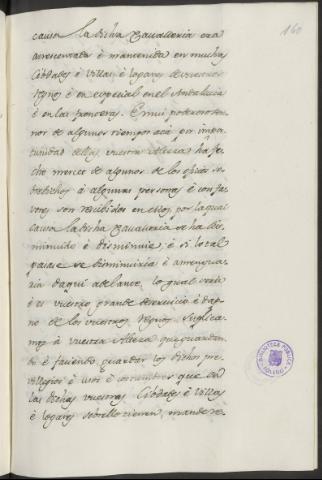 160
causa la dicha Cavalleria era
acrecentada è mantenida en muchas
Ciòdades è Villas è logares de vuestros
Regnos è en especial en el Andalucia
è en las fronteras. È mui poderoso se-
ñor de algunos tiempos acà por impor-
tunidad dellos vuestra Alteza ha fe-
cho merced de algunos de los oficios so-
bredichos à algunas personas è con fa-
vores son recibidos en ellos, por la qual
causa la dicha Cavalleria se ha dis-
minuido è disminuie, è si lo tal
pasase se disminuiria è amengua-
ria daqui adelante, lo qual seria
è es vuestro grande deservicio è dap-
no de los vuestros Regnos. Suplica-
mos à vuestra Alteza que guardan-
do è faciendo guardar los dichos pre-
villegios è usos è costumbres que en
las dichas vuestras Ciòdades è Villas
è logares sobrello tienen, mande re-
BIBLIOTECA PUBLICA
TOLEDO